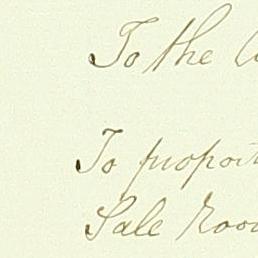 To the
To proport
Sale Roo